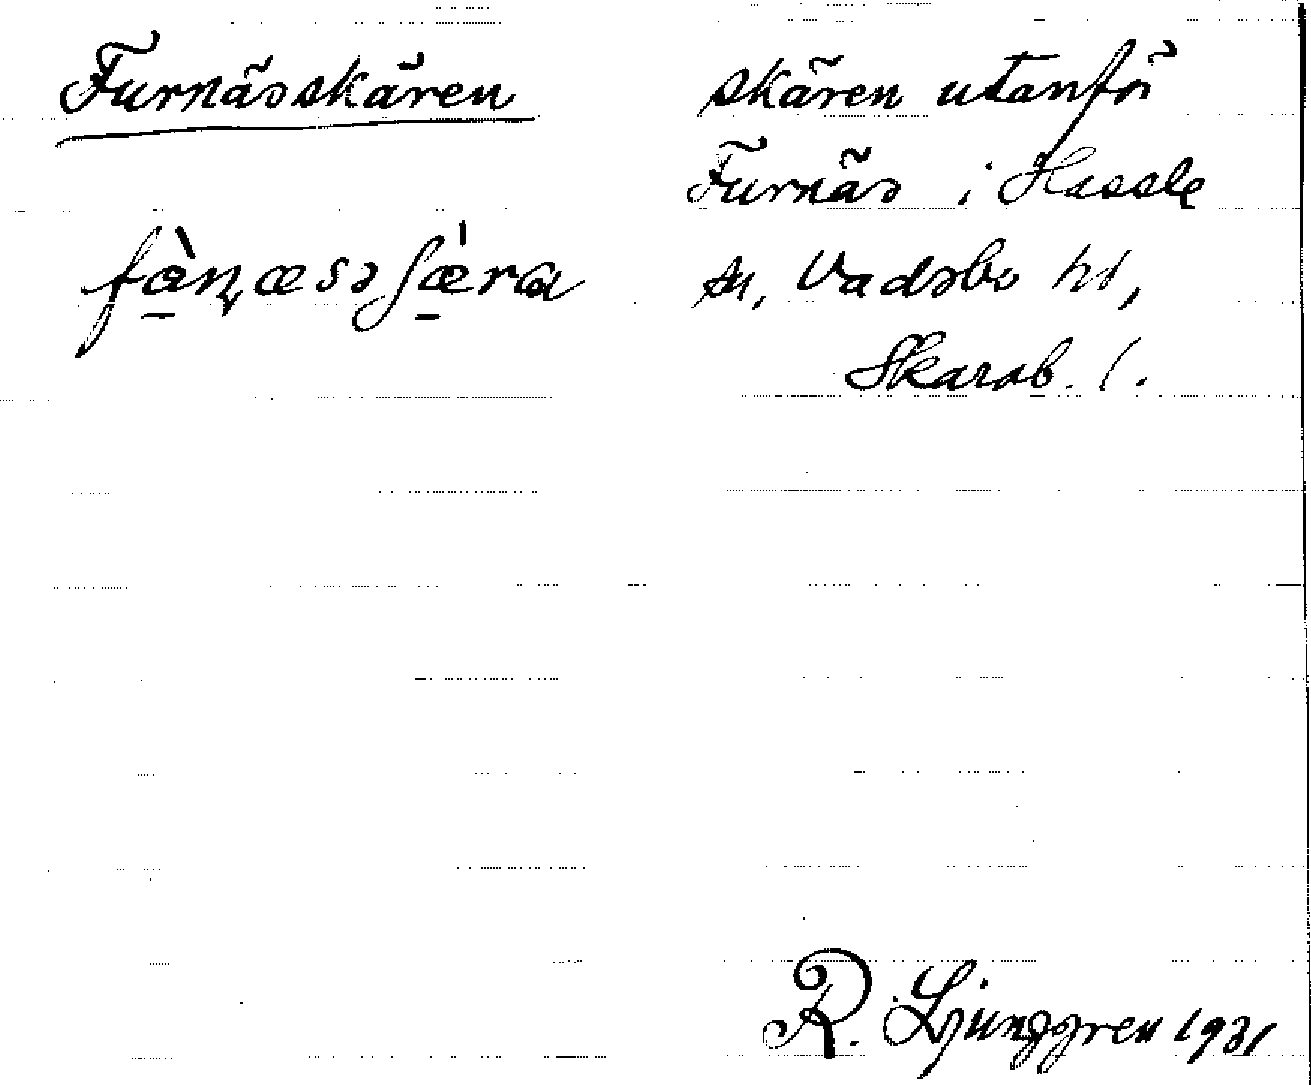 Furnässkären
skären utanför
Furnäs i Hassle
sn, Vadsbo hd,
Skarab. l.
R. Ljunggren 1931